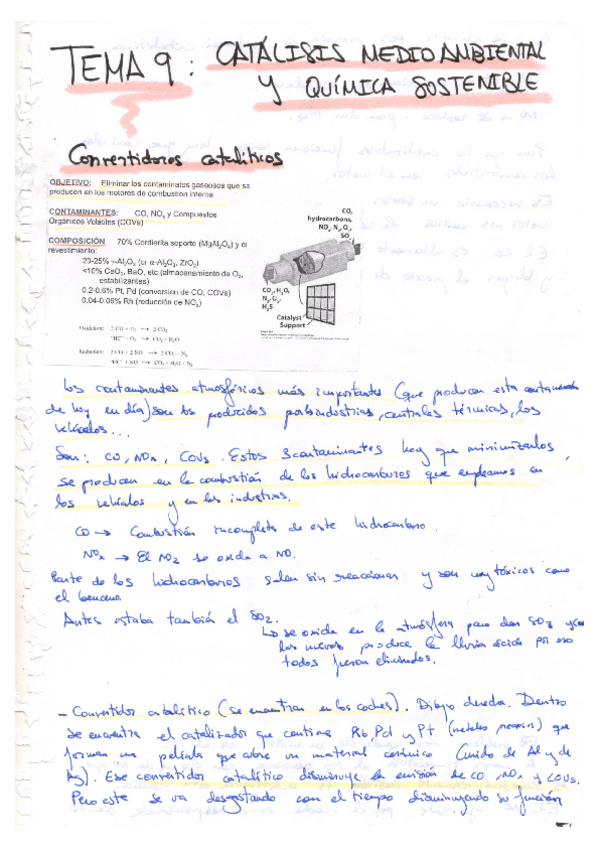 TEMA 9: CATÁLISIS MEDIOAMBIENTAL
Y QUÍMICA SOSTENIBLE
Convertidores catalíticos
OBJETIVO: Eliminar los contaminates gaseosos que se
producen en los motores de combustion interna
CONTAMINANTES: CO, NOx y Compuestos
Orgánicos Volátiles (COVs)
COMPOSICIÓN 70% Cordierita soporte (MgAl2O4) y el
revestimiento:
23-25% γ-Al2O3 (or α-Al2O3, ZrO2)
<10% CeO2, BaO, etc (almacenamiento de O2,
estabilizantes)
0.2-0.6% Pt, Pd (conversion de CO, COVs)
0.04-0.06% Rh (reducción de NOx)
Oxidation: 2 CO + O2 → 2 CO2
"HC" + O2 → CO2 + H2O
Reduction: 2 CO + 2 NO → 2 CO2 + N2
"HC" + NO → CO2 + H2O + N2
CO,
hydrocarbons,
NOx, N2, O2,
SO2
CO2, H2O,
N2, O2,
H2S
Catalyst
Support
Los contaminantes atmosféricos más importantes (que producen esta contaminación
de hoy en día) son los producidos por las industrias, centrales térmicas, los
vehículos...
Son: CO, NOx, COVs. Estos 3 contaminantes hay que minimizarlos,
se producen en la combustión de los hidrocarburos que empleamos en
los vehículos y en las industrias.
CO → Combustión incompleta de este hidrocarburo.
NOx → El NO2 se oxida a NO.
Parte de los hidrocarburos salen sin reaccionar y son muy tóxicos como
el benceno.
Antes estaba también el SO2.
↳ se oxida en la atmósfera para dar SO3 y
produce la lluvia ácida por eso
todos fueron eliminados.
- Convertidor catalítico (se encuentran en los coches). Dibujo derecha. Dentro
se encuentra el catalizador que contiene Rh, Pd y Pt (metales preciosos) que
forman una película que cubre un material cerámico (unido de Al y de
Ag). Ese convertidor catalítico disminuye la emisión de CO, NOx y COVs.
Pero este se va desgastando con el tiempo disminuyendo su función